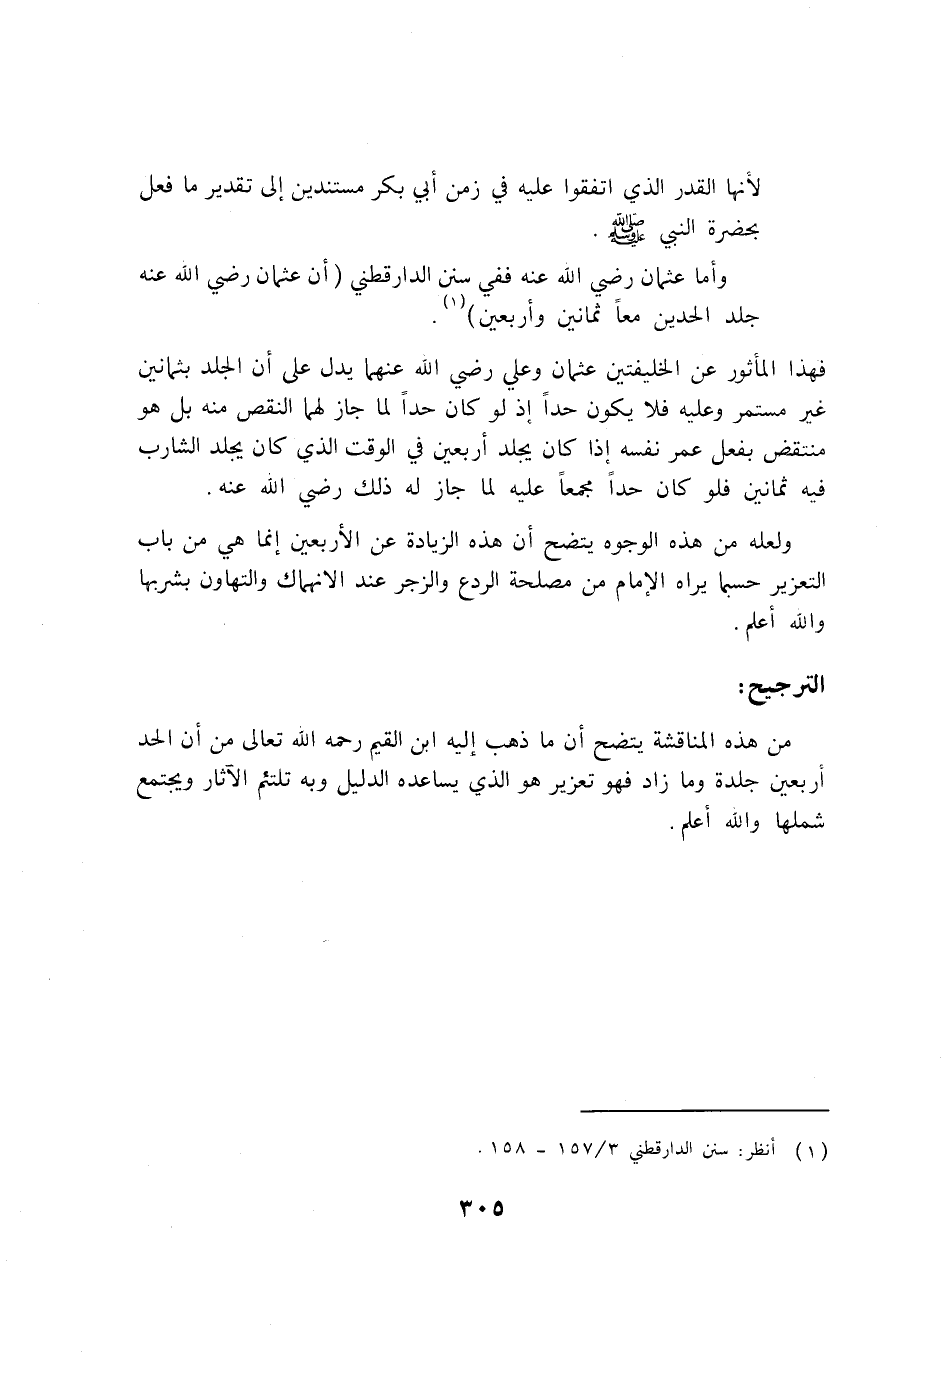 لأنها القدر الذي اتفقوا عليه في زمن أبي بكر مستندين إلى تقدير ما فعل
بحضرة النبي ﷺ .
وأما عثمان رضي الله عنه ففي سنن الدارقطني ( أن عثمان رضي الله عنه
جلد الحدين معاً ثمانين وأربعين)(١) .
فهذا المأثور عن الخليفتين عثمان وعلي رضي الله عنهما يدل على أن الجلد بثمانين
غير مستمر وعليه فلا يكون حداً إذ لو كان حداً لما جاز لهما النقص منه بل هو
منتقض بفعل عمر نفسه إذا كان يجلد أربعين في الوقت الذي كان يجلد الشارب
فيه ثمانين فلو كان حداً مجمعاً عليه لما جاز له ذلك رضي الله عنه .
ولعله من هذه الوجوه يتضح أن هذه الزيادة عن الأربعين إنما هي من باب
التعزير حسبما يراه الإمام من مصلحة الردع والزجر عند الانهماك والتهاون بشربها
والله أعلم .
الترجيح :
من هذه المناقشة يتضح أن ما ذهب إليه ابن القيم رحمه الله تعالى من أن الحد
أربعين جلدة وما زاد فهو تعزير هو الذي يساعده الدليل وبه تلتئم الآثار ويجتمع
شملها والله أعلم .
(١) أنظر: سنن الدارقطني ١٥٧/٣ - ١٥٨ .
٣٠٥